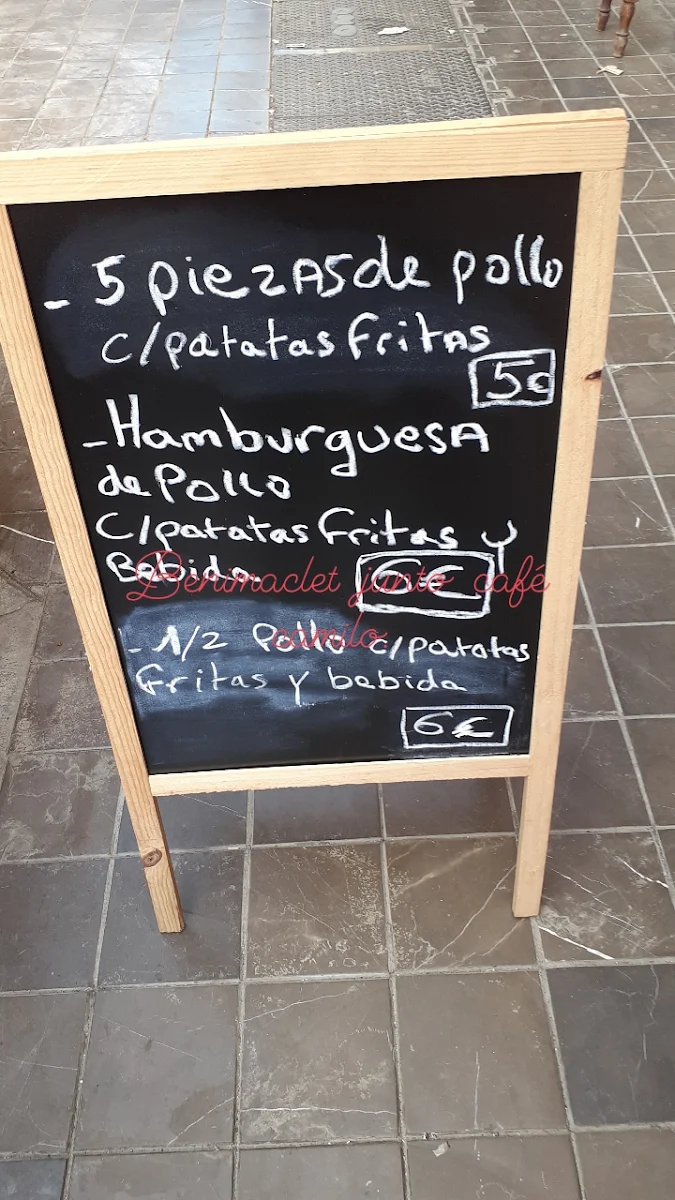 - 5 piezAs de pollo
c/patatas fritAs
5€
- HamburguesA
de Pollo
C/patatas fritas y
Bebida 6€
Benimaclet junto café
camilo
- 1/2 Pollo c/patatas
fritas y bebida
6€